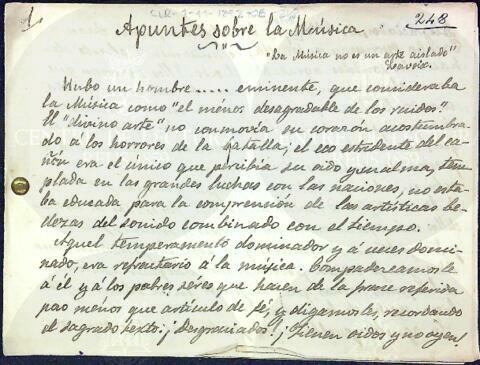 1
248
Apuntes sobre la Música
"La Música no es un arte aislado"
Lavoix.
Hubo un hombre..... eminente, que consideraba
la Música como "el ménos desagradable de los ruidos."
El "divino arte" no conmovía su corazón acostumbra-
do á los horrores de la batalla; el eco estridente del ca-
ñón era el único que percibia su oido y su alma, tem-
plada en las grandes luchas con las naciones, no esta-
ba educada para la comprensión de las artísticas be-
llezas del sonido combinado con el tiempo.
Aquel temperamento dominador y á veces domi-
nado, era refractario á la música. Compadezcamosle
á él y á los pobres séres que hacen de la frase referida
poco ménos que artículo de fé, y digamosles, recordando
el sagrado texto: ¡desgraciados! ¡tienen oidos y no oyen!